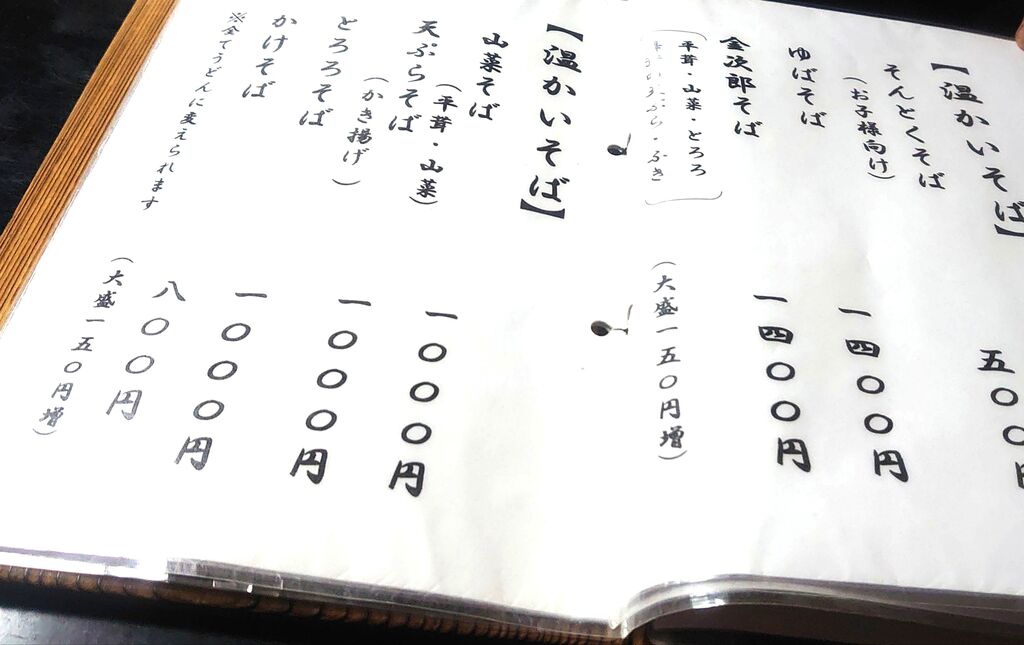 【温かいそば】
そんとくそば
(お子様向け)
五〇〇円
ゆばそば
一四〇〇円
金次郎そば
一四〇〇円
平茸・山菜・とろろ
天ぷら・ふき
(大盛一五〇円増)
【温かいそば】
山菜そば
(平茸・山菜)
一〇〇〇円
天ぷらそば
(かき揚げ)
一〇〇〇円
とろろそば
一〇〇〇円
かけそば
八〇〇円
※全てうどんに変えられます
(大盛一五〇円増)